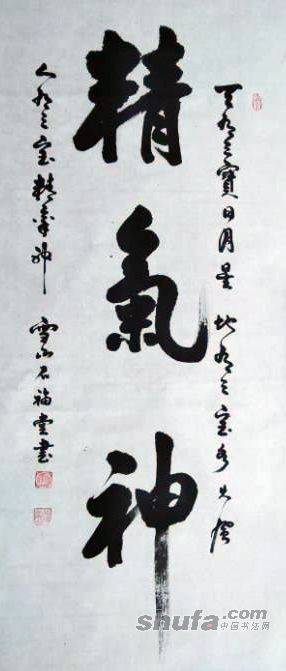 天有三寶日月星 地有三宝水火風
精氣神
人有三宝精氣神 雪山石福堂書
shufa.com
中国书法网